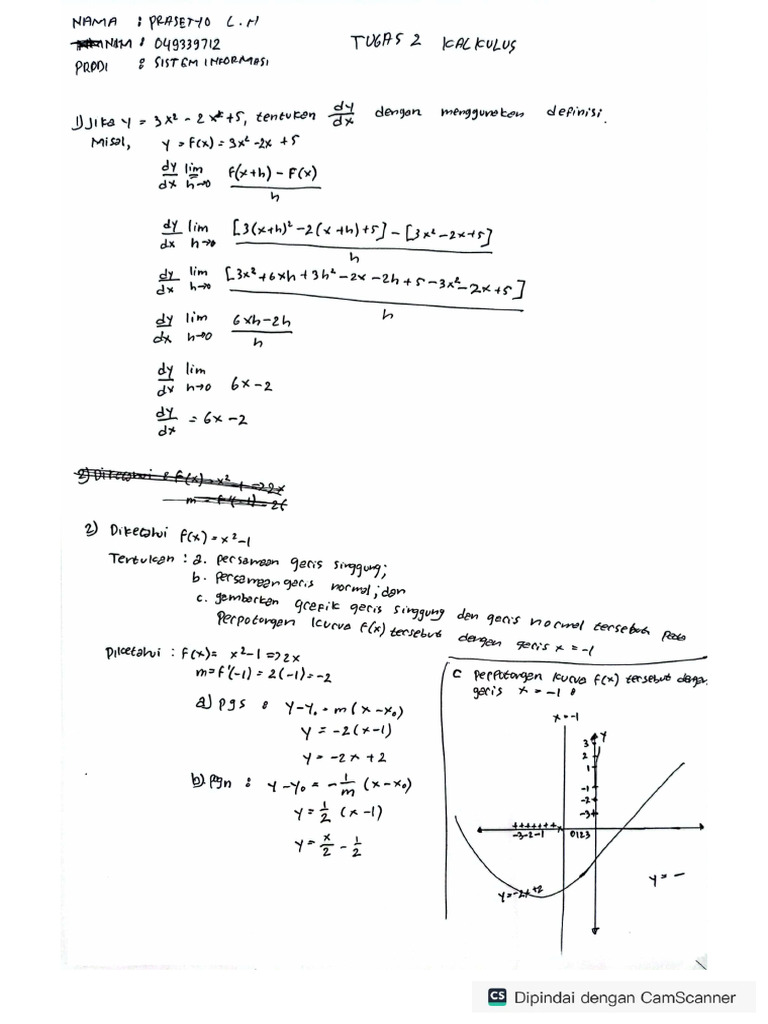 NAMA : PRASETYO L.H
NIM : 049339712
TUGAS 2 KALKULUS
PRODI : SISTEM INFORMASI
1) Jika y = 3x² - 2x +5, tentukan dy/dx dengan menggunakan definisi.
Misal, y = f(x) = 3x² - 2x + 5
dy/dx lim h→0 f(x+h) - f(x) / h
dy/dx lim h→0 [3(x+h)² - 2(x+h)+5] - [3x² - 2x+5] / h
dy/dx lim h→0 [3x² + 6xh + 3h² - 2x - 2h + 5 - 3x² - 2x + 5] / h
dy/dx lim h→0 6xh - 2h / h
dy/dx lim h→0 6x - 2
dy/dx = 6x - 2
2) Diketahui f(x) = x² - 1
Tentukan : a. persamaan garis singgung;
b. persamaan garis normal; dan
c. gambarkan grafik garis singgung dan garis normal tersebut pada
Perpotongan kurva f(x) tersebut dengan garis x = -1
Diketahui : f(x) = x² - 1 => 2x
m = f'(-1) = 2(-1) = -2
a) pgs : y - y₀ = m(x - x₀)
y = -2(x - 1)
y = -2x + 2
b) pgn : y - y₀ = -1/m (x - x₀)
y = 1/2 (x - 1)
y = x/2 - 1/2
c perpotongan kurva f(x) tersebut dengan
garis x = -1 :
x = -1
y
3
2
1
-1
-2
-3
-3 -2 -1 0 1 2 3
y = -2x + 2
y = -
CS Dipindai dengan CamScanner